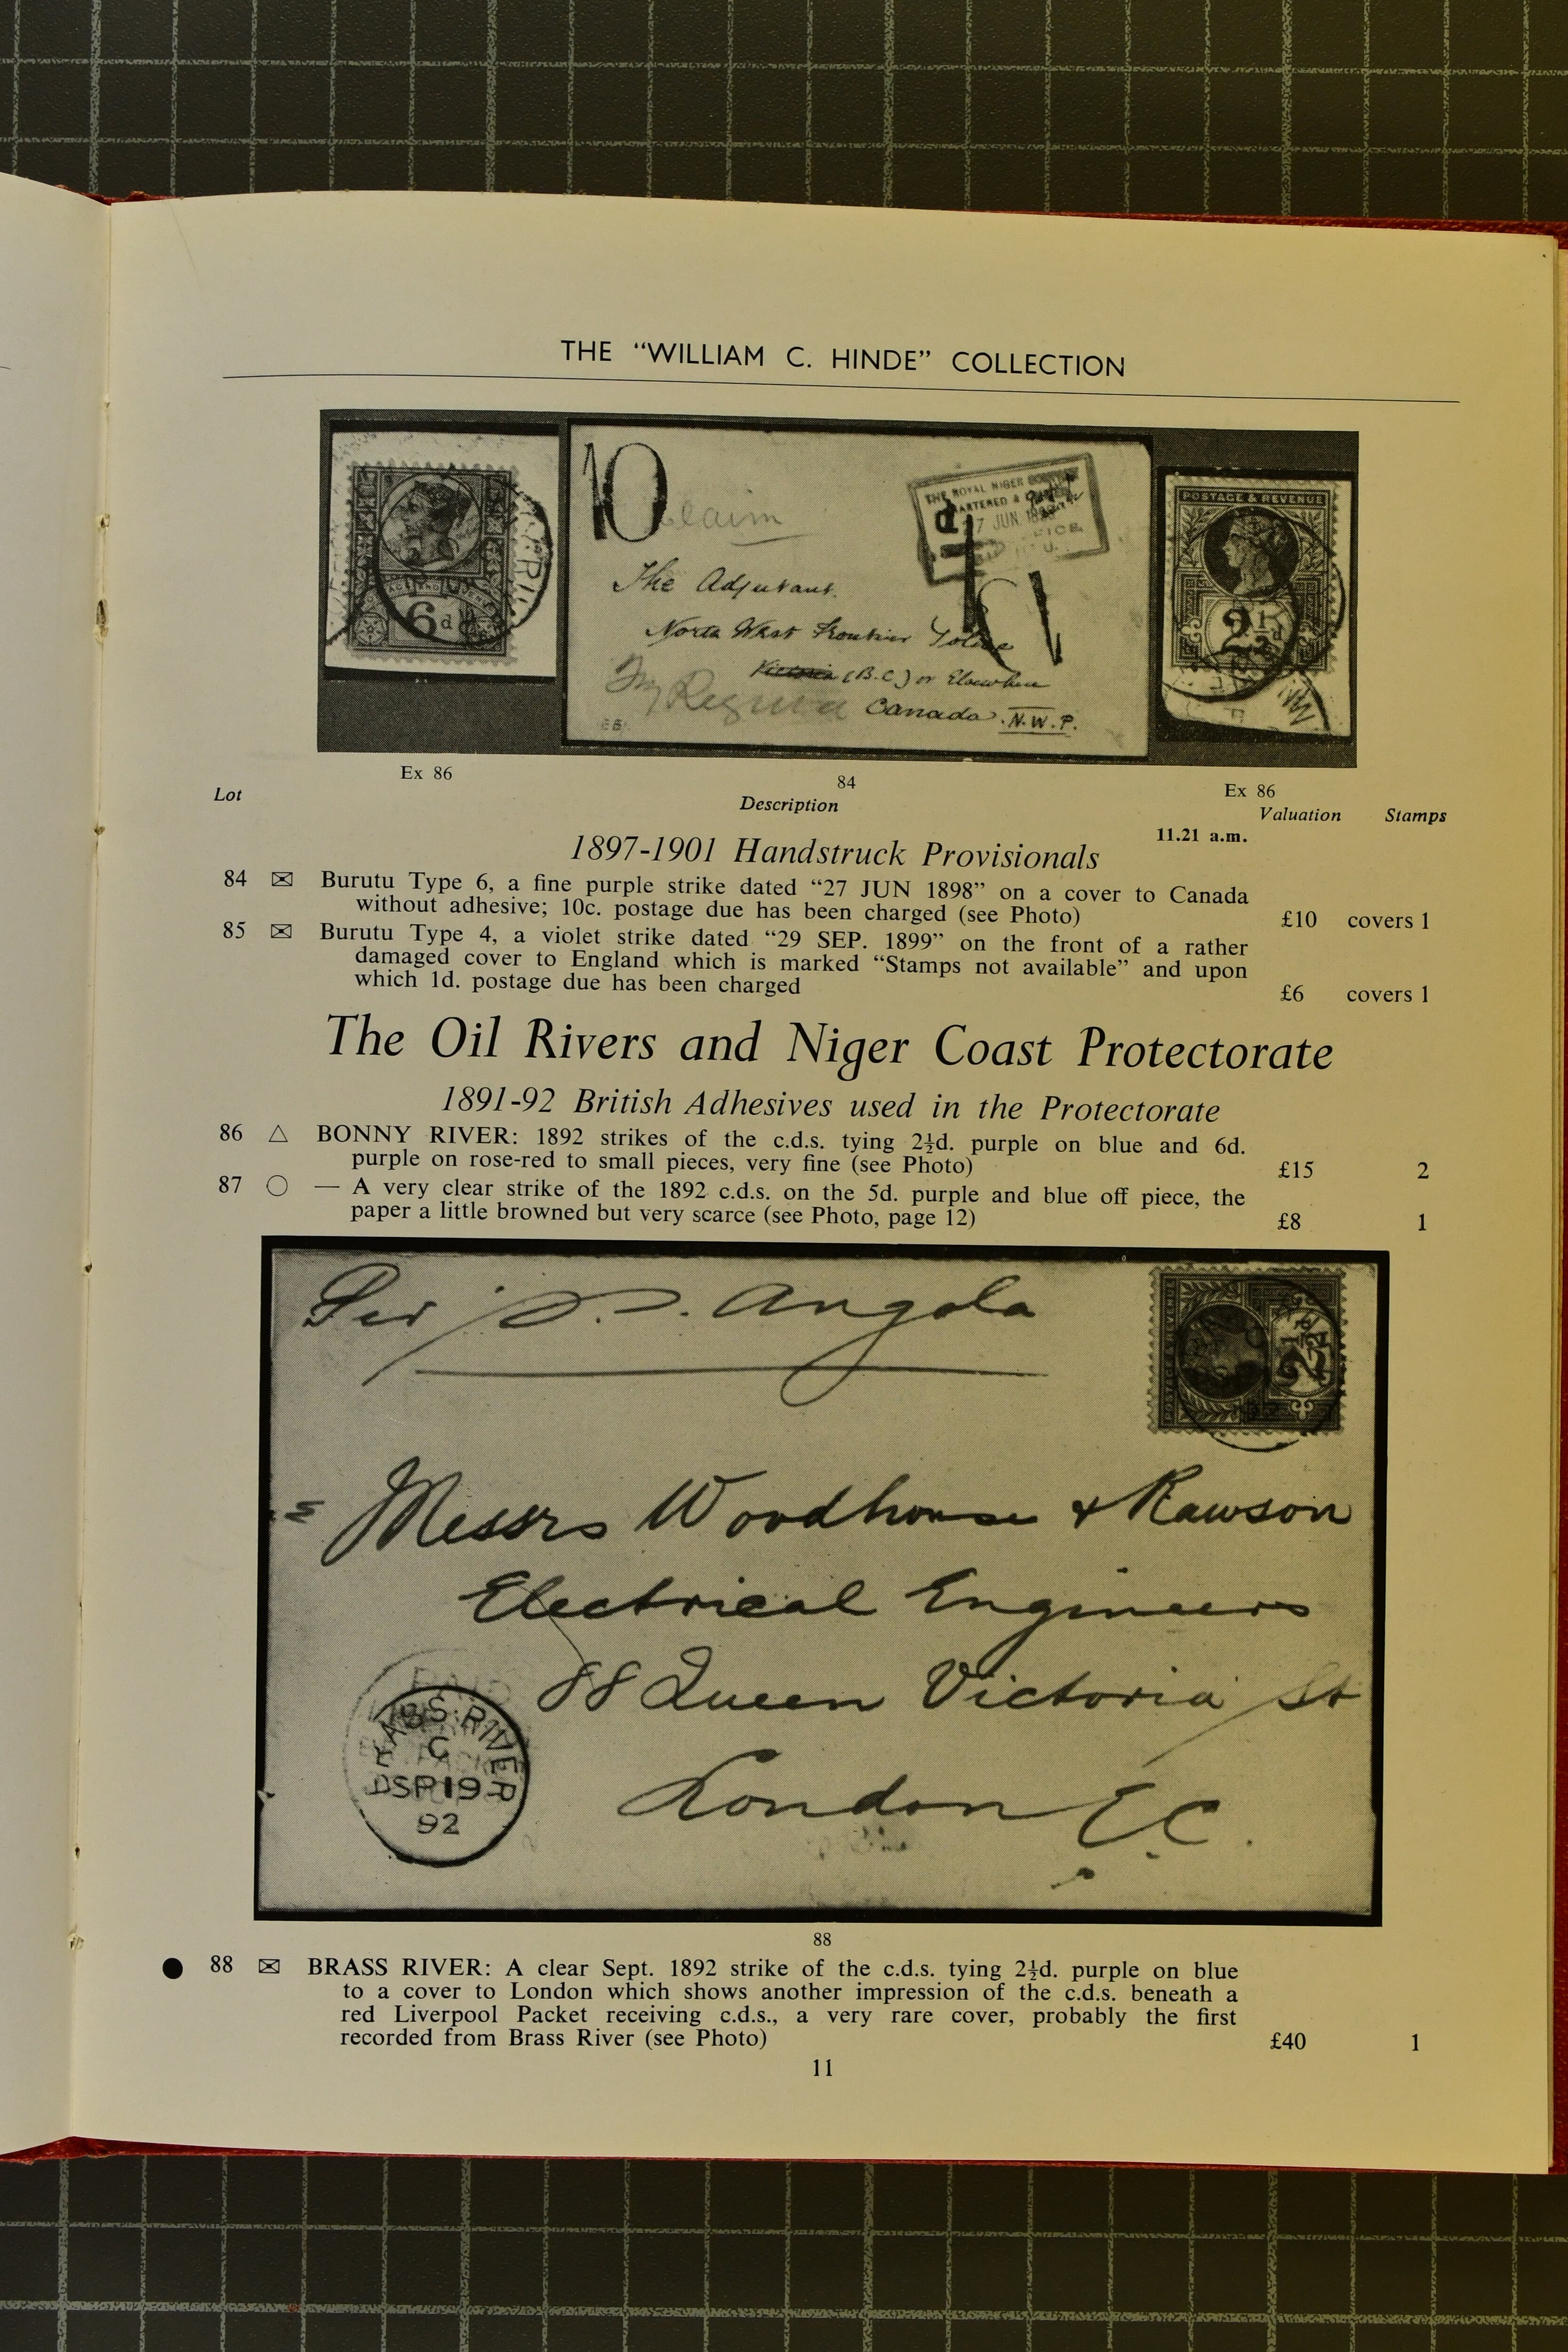 THE "WILLIAM C. HINDE" COLLECTION
10
claim
THE ROYAL NIGER
CHARTERED &
27 JUN 1898
OFFICE
The Adjutant.
North West Frontier Police
Victoria (B.C.) or Elsewhere
Regina Canada. N.W.P.
6d
POSTAGE & REVENUE
2½d
Ex 86
84
Ex 86
Lot
Description
Valuation
Stamps
11.21 a.m.
1897-1901 Handstruck Provisionals
84 ✉ Burutu Type 6, a fine purple strike dated "27 JUN 1898" on a cover to Canada
without adhesive; 10c. postage due has been charged (see Photo) £10 covers 1
85 ✉ Burutu Type 4, a violet strike dated "29 SEP. 1899" on the front of a rather
damaged cover to England which is marked "Stamps not available" and upon
which 1d. postage due has been charged £6 covers 1
The Oil Rivers and Niger Coast Protectorate
1891-92 British Adhesives used in the Protectorate
86 △ BONNY RIVER: 1892 strikes of the c.d.s. tying 2½d. purple on blue and 6d.
purple on rose-red to small pieces, very fine (see Photo) £15 2
87 ○ — A very clear strike of the 1892 c.d.s. on the 5d. purple and blue off piece, the
paper a little browned but very scarce (see Photo, page 12) £8 1
Per S.S. Angola
POSTAGE & REVENUE
2½d
Messrs Woodhouse & Rawson
Electrical Engineers
88 Queen Victoria St
London E.C.
PAID
BRASS·RIVER
C
SP 19
92
88
● 88 ✉ BRASS RIVER: A clear Sept. 1892 strike of the c.d.s. tying 2½d. purple on blue
to a cover to London which shows another impression of the c.d.s. beneath a
red Liverpool Packet receiving c.d.s., a very rare cover, probably the first
recorded from Brass River (see Photo) £40 1
11